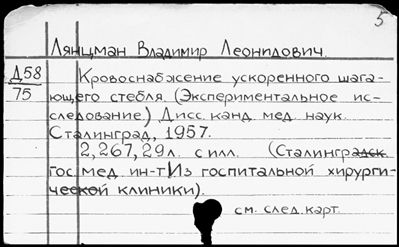 5
Лянцман Владимир Леонидович.
Д58
75
Кровоснабжение ускоренного шага-
ющего стебля. (Экспериментальное ис-
следование) Дисс. канд. мед. наук.
Сталинград, 1957.
2,267,29л. с илл. (Сталинградск.
Гос. мед. ин-т Из госпитальной хирурги-
ческой клиники).
см. след. карт.